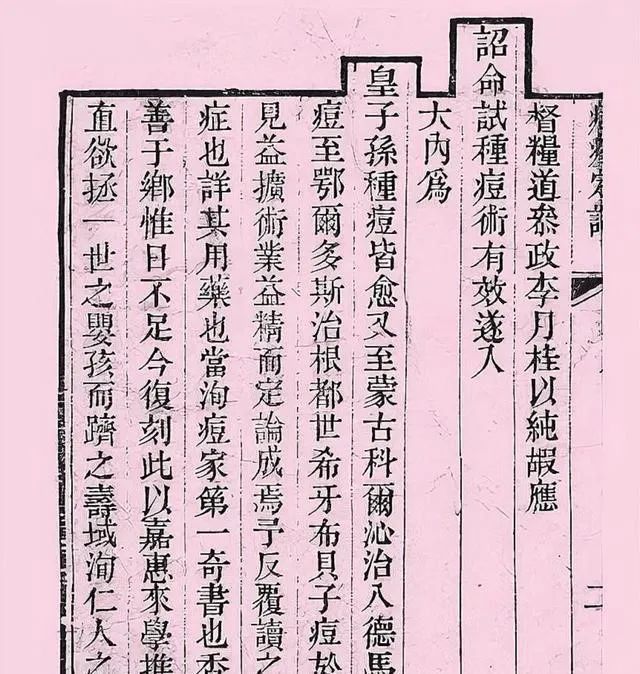 督糧道叅政李月桂以純嘏應
詔命試種痘術有效遂入
大內爲
皇子孫種痘皆愈又至蒙古科爾沁治八德馬
痘至鄂爾多斯治根都世希牙布貝子痘於
見益擴術業益精而定論成焉予反覆讀之
症也詳其用藥也當洵痘家第一奇書也杏
善于鄉惟日不足今復刻此以嘉惠來學推
直欲拯一世之嬰孩而躋之壽域洵仁人之
二